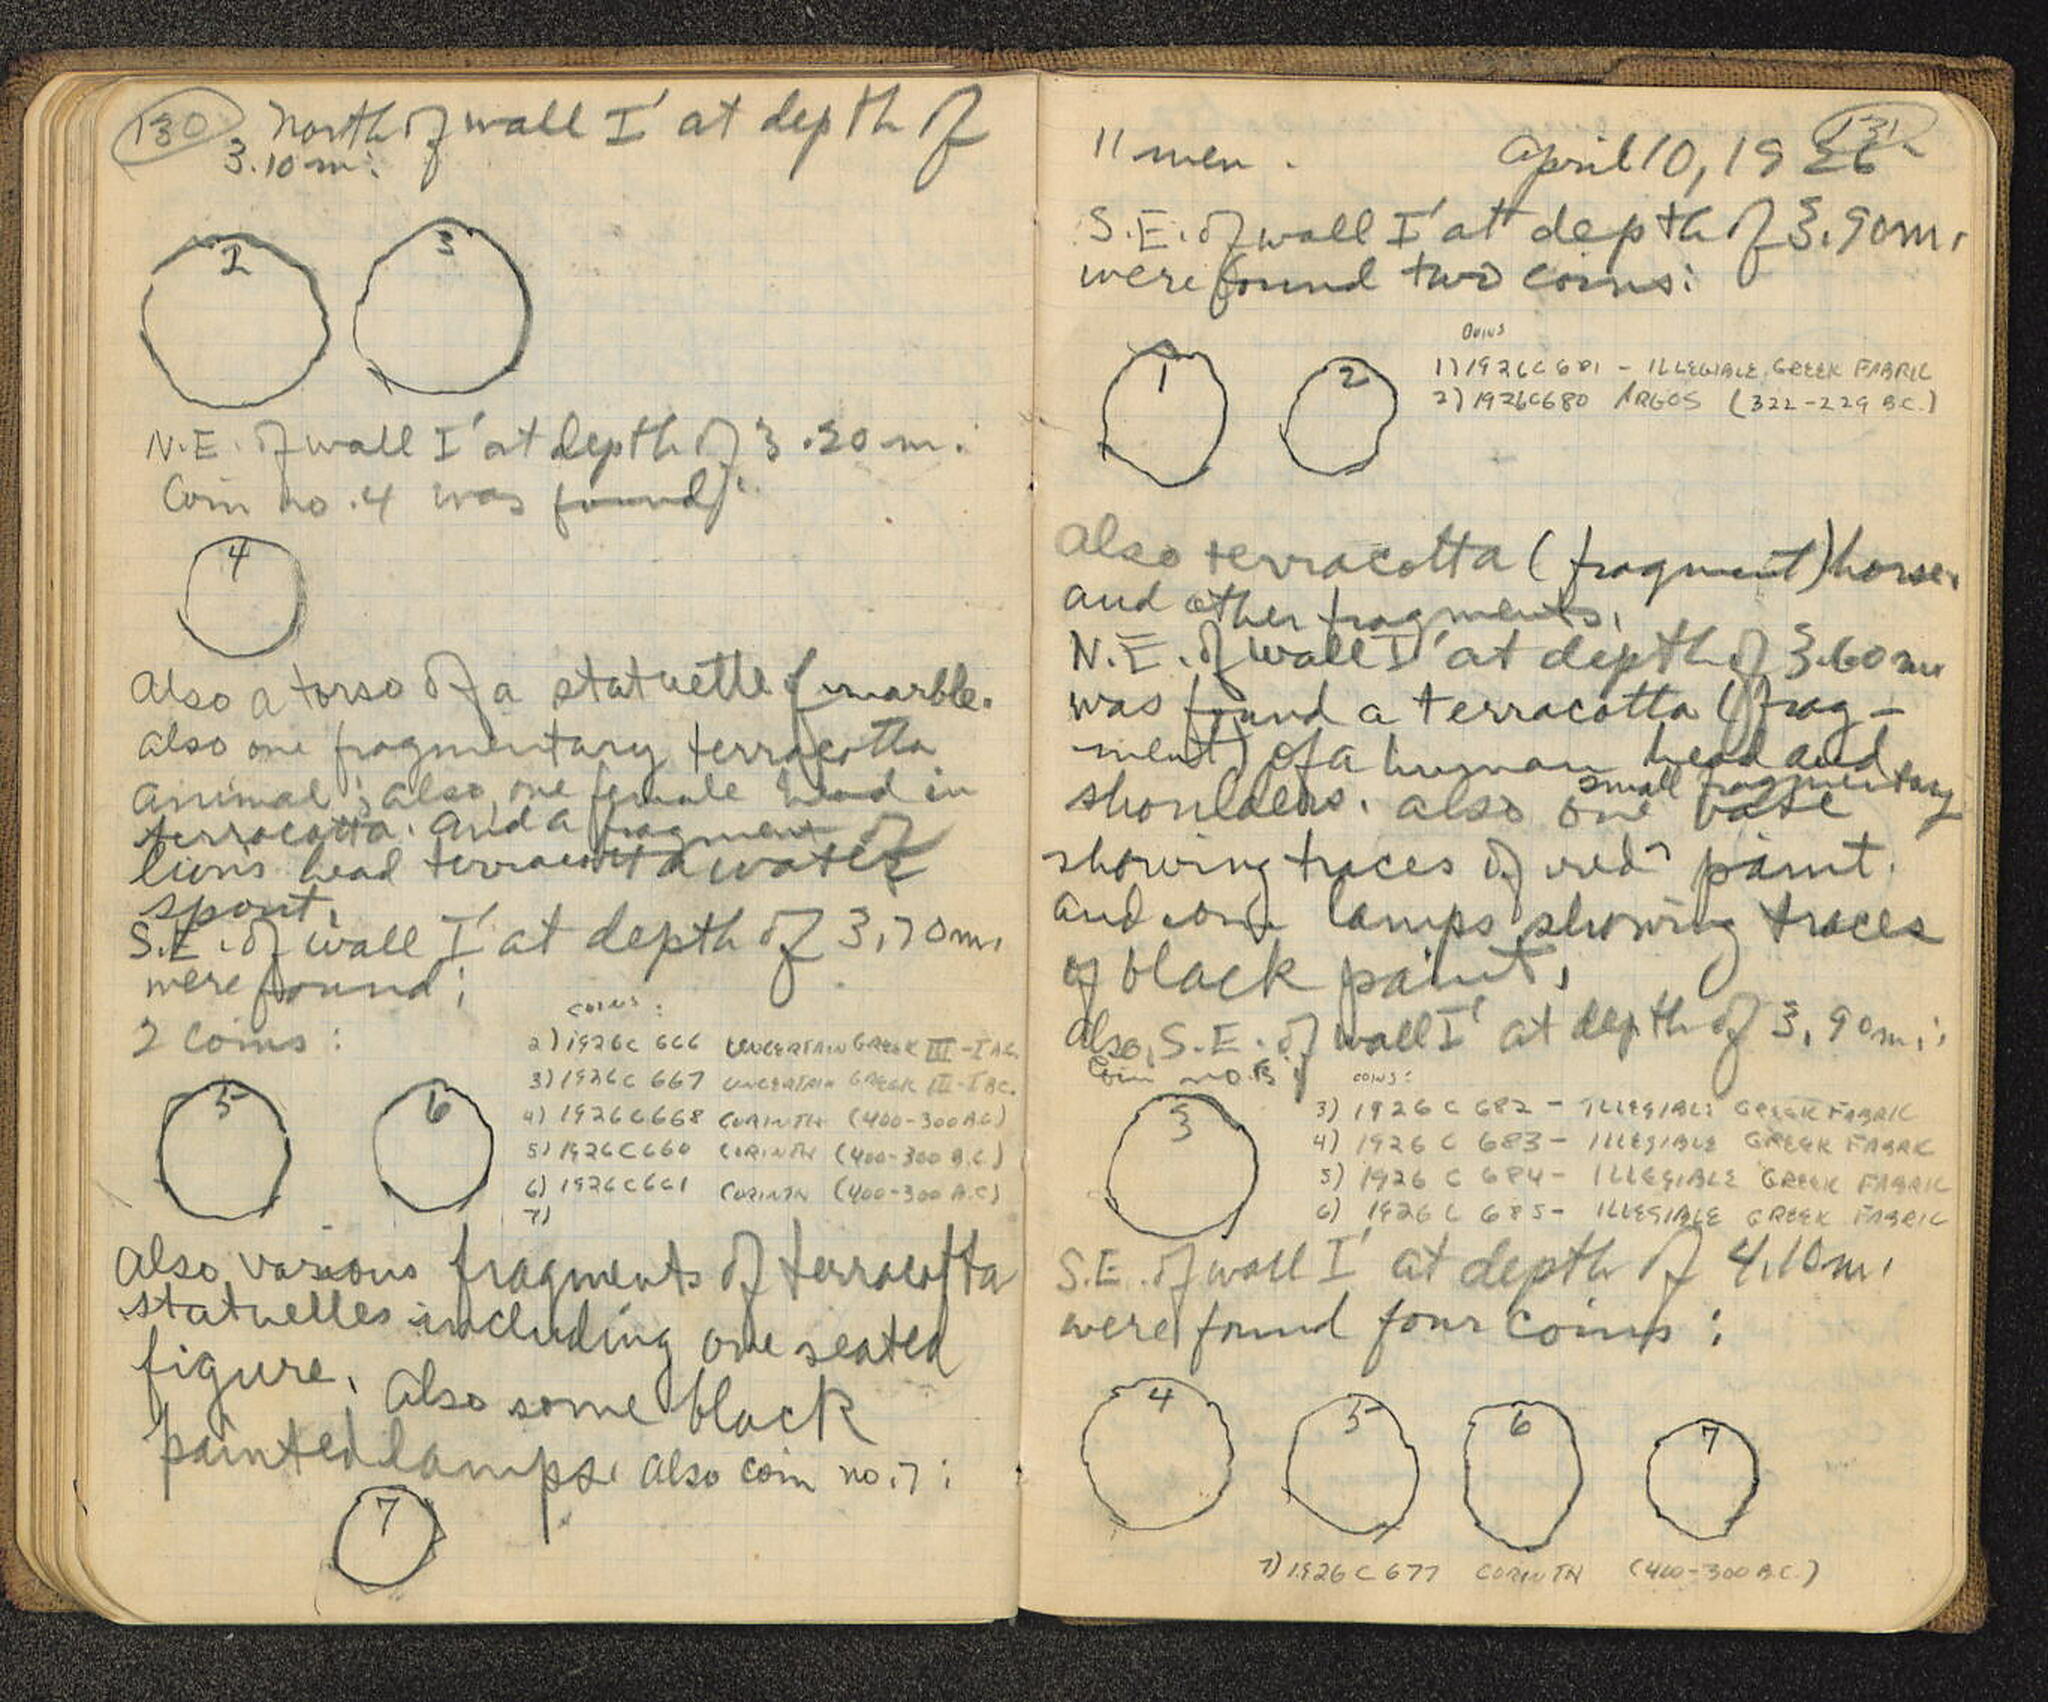 130
North of wall I' at depth of
3.10 m:
2
3
N.E. of wall I' at depth of 3.20 m.
Coin no. 4 was found:
4
Also a torso of a statuette of marble.
Also one fragmentary terracotta
animal; also one female head in
terracotta. And a fragment of
lion's head terracotta water
spout.
S.E. of wall I' at depth of 3.70 m.
were found:
2 coins:
COINS:
2) 1926C 666 UNCERTAIN GREEK III-I B.C.
3) 1926C 667 UNCERTAIN GREEK III-I B.C.
4) 1926C 668 CORINTH (400-300 B.C.)
5) 1926C 660 CORINTH (400-300 B.C.)
6) 1926C 661 CORINTH (400-300 B.C.)
7)
5
6
Also various fragments of terracotta
statuettes including one seated
figure. Also some black
painted lamps. Also coin no. 7:
7
131
11 men. April 10, 1926
S.E. of wall I' at depth of 3.90 m.
were found two coins:
COINS
1) 1926C 681 - ILLEGIBLE GREEK FABRIC
2) 1926C680 ARGOS (322-229 B.C.)
1
2
Also terracotta (fragment) horse.
and other fragments.
N.E. of wall I' at depth of 3.60 m
was found a terracotta (frag-
ment) of a human head and
shoulders. Also one small fragmentary vase
showing traces of red paint.
and lamps showing traces
of black paint.
Also, S.E. of wall I' at depth of 3.90 m.:
Coin no. 3
COINS:
3) 1926 C 682 - ILLEGIBLE GREEK FABRIC
4) 1926 C 683 - ILLEGIBLE GREEK FABRIC
5) 1926 C 684 - ILLEGIBLE GREEK FABRIC
6) 1926 C 685 - ILLEGIBLE GREEK FABRIC
3
S.E. of wall I' at depth of 4.10 m.
were found four coins:
4
5
6
7
7) 1926 C 677 CORINTH (400-300 B.C.)